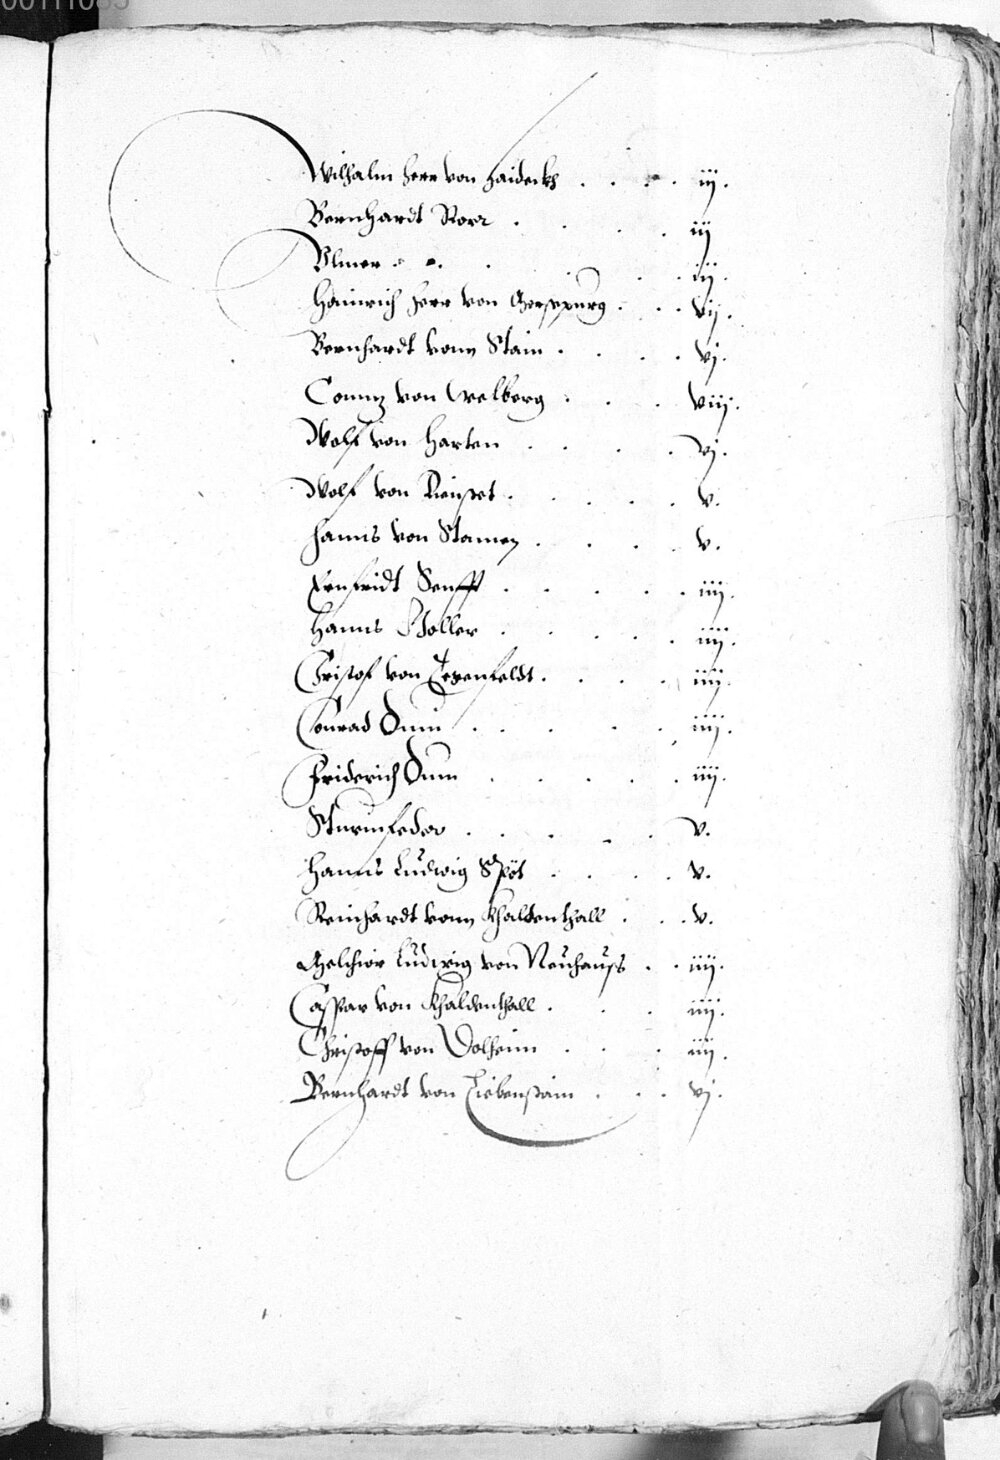 00111085
Wilhalm herr von Haideckh . . . . iij.
Bernhardt Rorr . . . . iij
Ulmer . . . . . iij.
Hainrich herr von Gerspurg . . . vij.
Bernhardt vonn Stain . . . . vj.
Connz von Welberg . . . viij.
Wolf von Harten . . . . vj.
Wolf von . . . . . v.
Hanns von Stamen . . . . v.
Ernfridt Senfft . . . . . iiij.
Hanns Holler . . . . . iiij.
Cristof von . . . . iiij.
Conrad Dum . . . . . iiij.
Friderich Dum . . . . . iiij.
Sturmfeder . . . . . v.
Hanns Ludwig Spät . . . . v.
Reinhardt vonn Khaltenthall . . . v.
Melchior Ludwig von Neuhauss . . iiij.
Casspar von Khaldenthall . . . iiij.
Christoff von Dolheim . . . iiij.
Bernhardt von Liebenstain . . . vj.